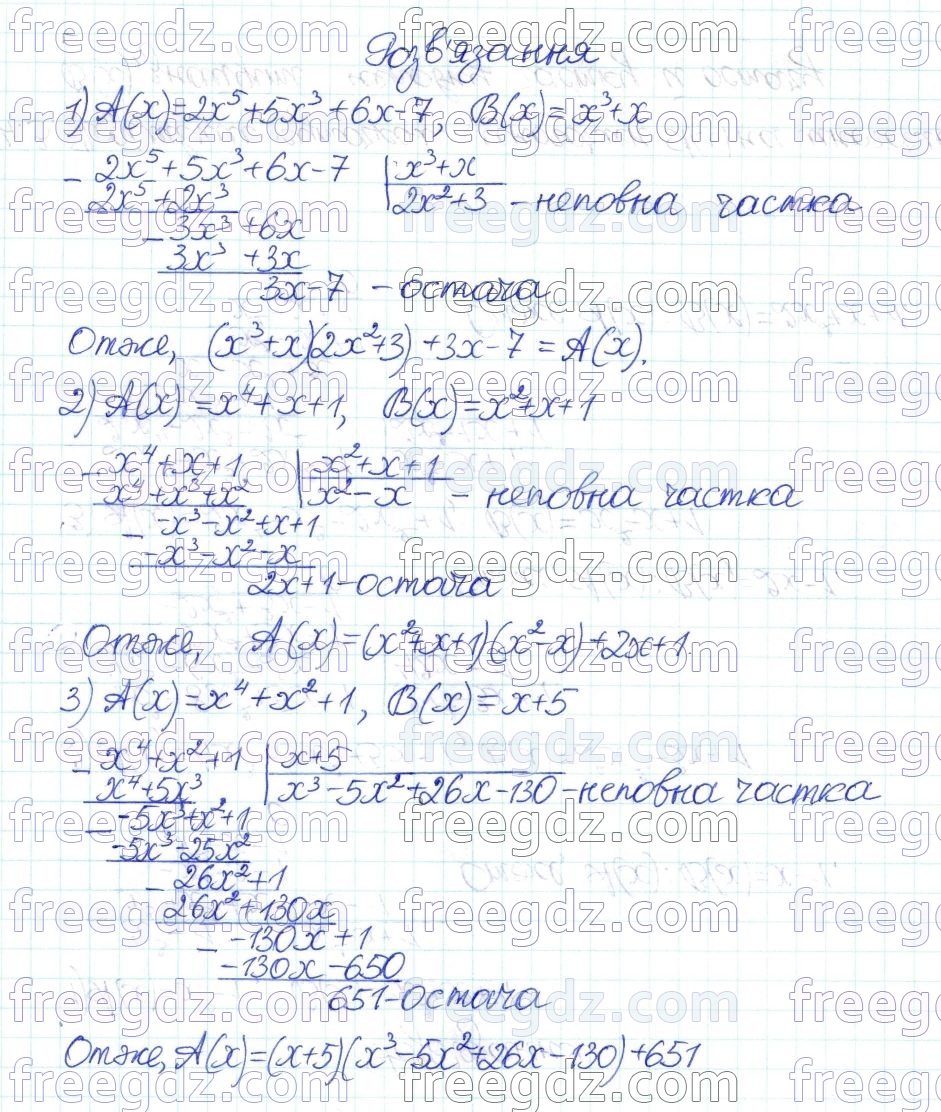 Розв'язання
1) A(x)=2x⁵+5x³+6x-7, B(x)=x³+x
- 2x⁵+5x³+6x-7 | x³+x
2x⁵+2x³ | 2x²+3 - неповна частка
- 3x³+6x
3x³+3x
3x-7 - остача
Отже, (x³+x)(2x²+3)+3x-7=A(x).
2) A(x)=x⁴+x+1, B(x)=x²+x+1
- x⁴+x+1 | x²+x+1
x⁴+x³+x² | x²-x - неповна частка
- -x³-x²+x+1
-x³-x²-x
2x+1-остача
Отже, A(x)=(x²+x+1)(x²-x)+2x+1.
3) A(x)=x⁴+x²+1, B(x)=x+5
- x⁴+x²+1 | x+5
x⁴+5x³ | x³-5x²+26x-130-неповна частка
- -5x³+x²+1
-5x³-25x²
- 26x²+1
26x²+130x
- -130x+1
-130x-650
651-остача
Отже, A(x)=(x+5)(x³-5x²+26x-130)+651
freegdz.com